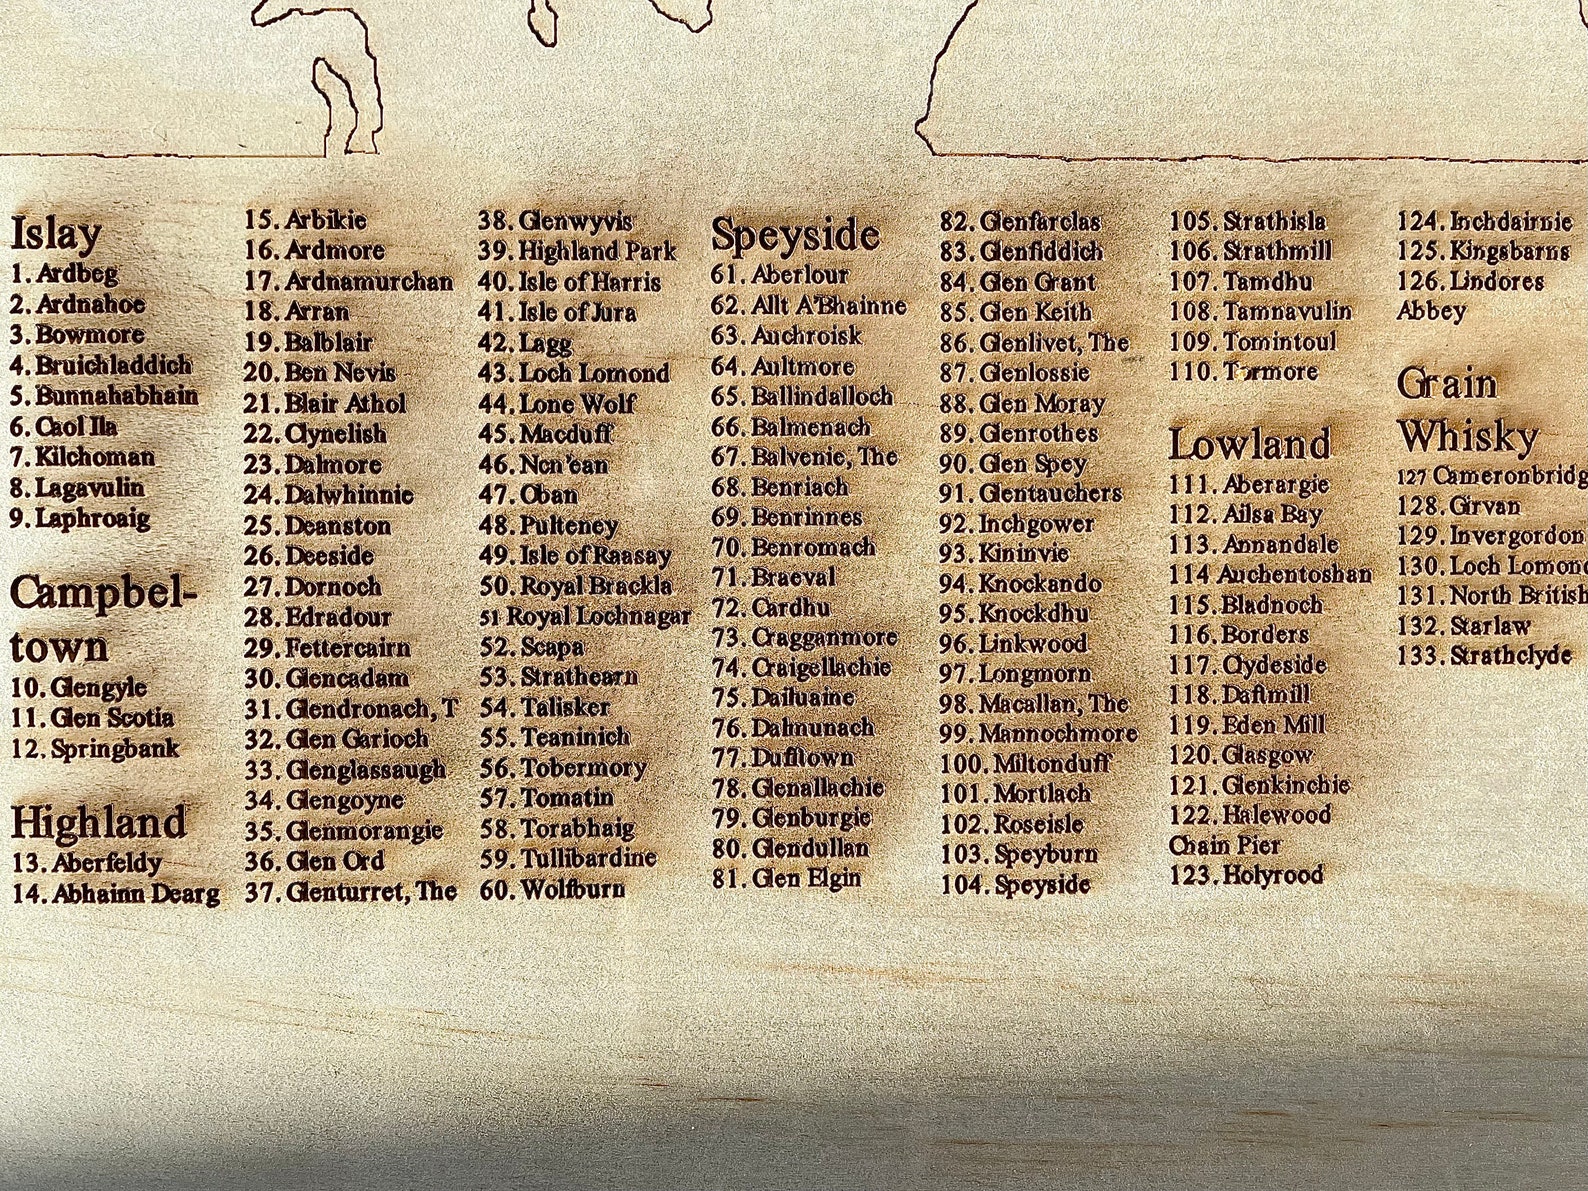 Islay
1. Ardbeg
2. Ardnahoe
3. Bowmore
4. Bruichladdich
5. Bunnahabhain
6. Caol Ila
7. Kilchoman
8. Lagavulin
9. Laphroaig
Campbel-
town
10. Glengyle
11. Glen Scotia
12. Springbank
Highland
13. Aberfeldy
14. Abhainn Dearg
15. Arbikie
16. Ardmore
17. Ardnamurchan
18. Arran
19. Balblair
20. Ben Nevis
21. Blair Athol
22. Clynelish
23. Dalmore
24. Dalwhinnie
25. Deanston
26. Deeside
27. Dornoch
28. Edradour
29. Fettercairn
30. Glencadam
31. Glendronach, T
32. Glen Garioch
33. Glenglassaugh
34. Glengoyne
35. Glenmorangie
36. Glen Ord
37. Glenturret, The
38. Glenwyvis
39. Highland Park
40. Isle of Harris
41. Isle of Jura
42. Lagg
43. Loch Lomond
44. Lone Wolf
45. Macduff
46. Ncn'ean
47. Oban
48. Pulteney
49. Isle of Raasay
50. Royal Brackla
51 Royal Lochnagar
52. Scapa
53. Strathearn
54. Talisker
55. Teaninich
56. Tobermory
57. Tomatin
58. Torabhaig
59. Tullibardine
60. Wolfburn
Speyside
61. Aberlour
62. Allt A'Bhainne
63. Auchroisk
64. Aultmore
65. Ballindalloch
66. Balmenach
67. Balvenie, The
68. Benriach
69. Benrinnes
70. Benromach
71. Braeval
72. Cardhu
73. Cragganmore
74. Craigellachie
75. Dailuaine
76. Dalmunach
77. Dufftown
78. Glenallachie
79. Glenburgie
80. Glendullan
81. Glen Elgin
82. Glenfarclas
83. Glenfiddich
84. Glen Grant
85. Glen Keith
86. Glenlivet, The
87. Glenlossie
88. Glen Moray
89. Glenrothes
90. Glen Spey
91. Glentauchers
92. Inchgower
93. Kininvie
94. Knockando
95. Knockdhu
96. Linkwood
97. Longmorn
98. Macallan, The
99. Mannochmore
100. Miltonduff
101. Mortlach
102. Roseisle
103. Speyburn
104. Speyside
105. Strathisla
106. Strathmill
107. Tamdhu
108. Tamnavulin
109. Tomintoul
110. Tormore
Lowland
111. Aberargie
112. Ailsa Bay
113. Annandale
114 Auchentoshan
115. Bladnoch
116. Borders
117. Clydeside
118. Daftmill
119. Eden Mill
120. Glasgow
121. Glenkinchie
122. Halewood
Chain Pier
123. Holyrood
124. Inchdairnie
125. Kingsbarns
126. Lindores
Abbey
Grain
Whisky
127 Cameronbridg
128. Girvan
129. Invergordon
130. Loch Lomond
131. North British
132. Starlaw
133. Strathclyde